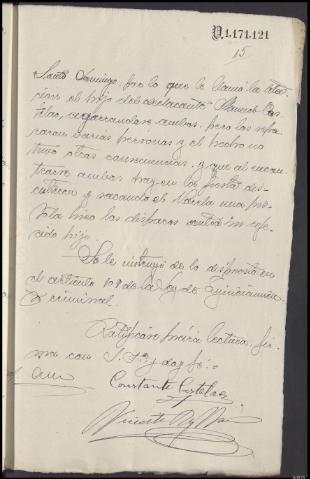 D1.171.121
15
Santo Domingo, por lo que le llamó la aten-
ción el hijo del declarante Manuel Cas-
telao, agarrandose ambos, pero los sepa-
raron varias personas y el hecho no
tuvo otras consecuencias, y que al encon-
trarse ambos hoy en la fiesta dis-
cutieron y sacando el una pis-
tola hizo los disparos contra su refe-
rido hijo.
Se le instruyó de lo dispuesto en
el artículo 109 de la Ley de Enjuiciamien-
to criminal.
Ratificán previa lectura, fir-
ma con S.Sª y doy fé.=
Constante Castelao
Vicente